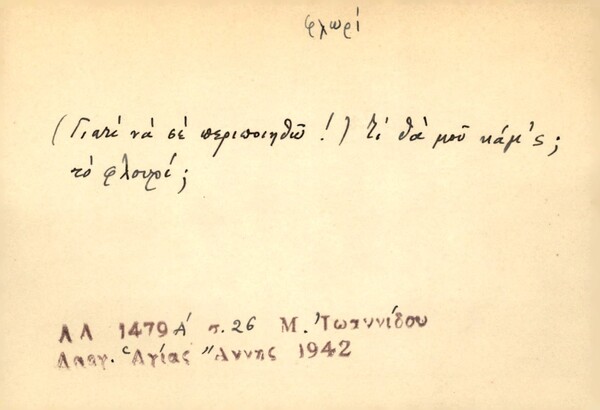 φλωρί
(Γιατί νά σέ περιποιηθῶ!) τί θά μοῦ κάμ'ς;
τό φλουρί;
ΛΛ 1479 Α΄ σ. 26 Μ. Ἰωαννίδου
Λαογ. Ἁγίας Ἄννης 1942